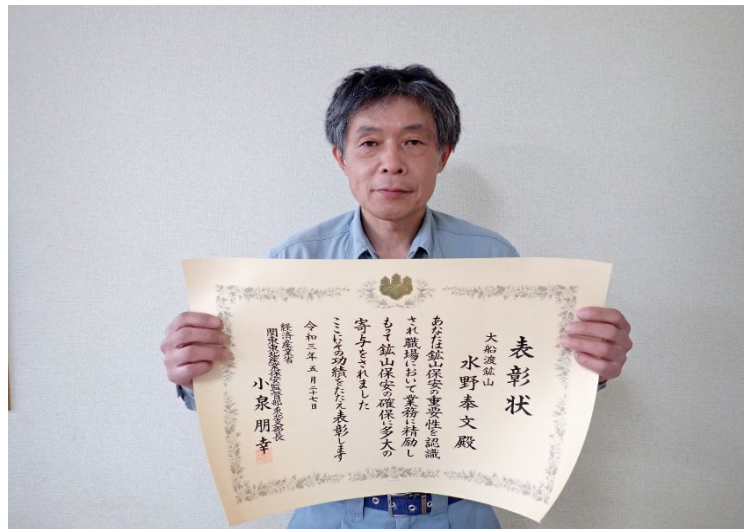 表彰状
大船渡鉱山
水野泰文殿
あなたは鉱山保安の重要性を認識
され職場において業務に精励し
もって鉱山保安の確保に多大の
寄与をされました
ここにその功績をたたえ表彰します
令和三年五月二十七日
経済産業省
関東東北産業保安監督部東北支部長
小泉朋幸